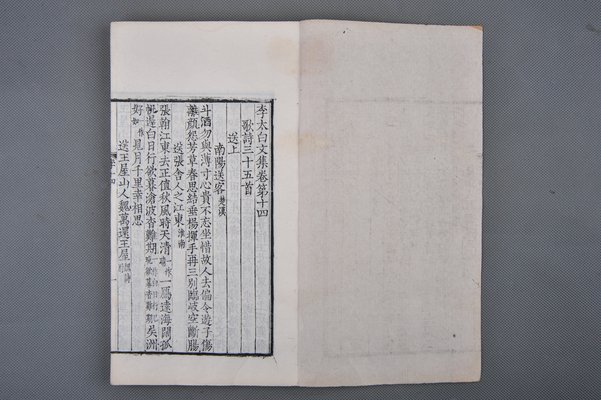 李太白文集卷第十四
歌詩三十五首
送上
南陽送客
斗酒勿與薄寸心貴不忘坐惜故人去偏令遊子傷
離顔怨芳草春思結垂楊揮手再三別臨岐空斷腸
送張舍人之江東 淮南
張翰江東去正值秋風時天清 一作 一鴈遠海闊孤
帆遲白日行欲暮滄波杳難期 吳洲
好 如 一作 見月千里幸相思
送王屋山人魏萬還王屋